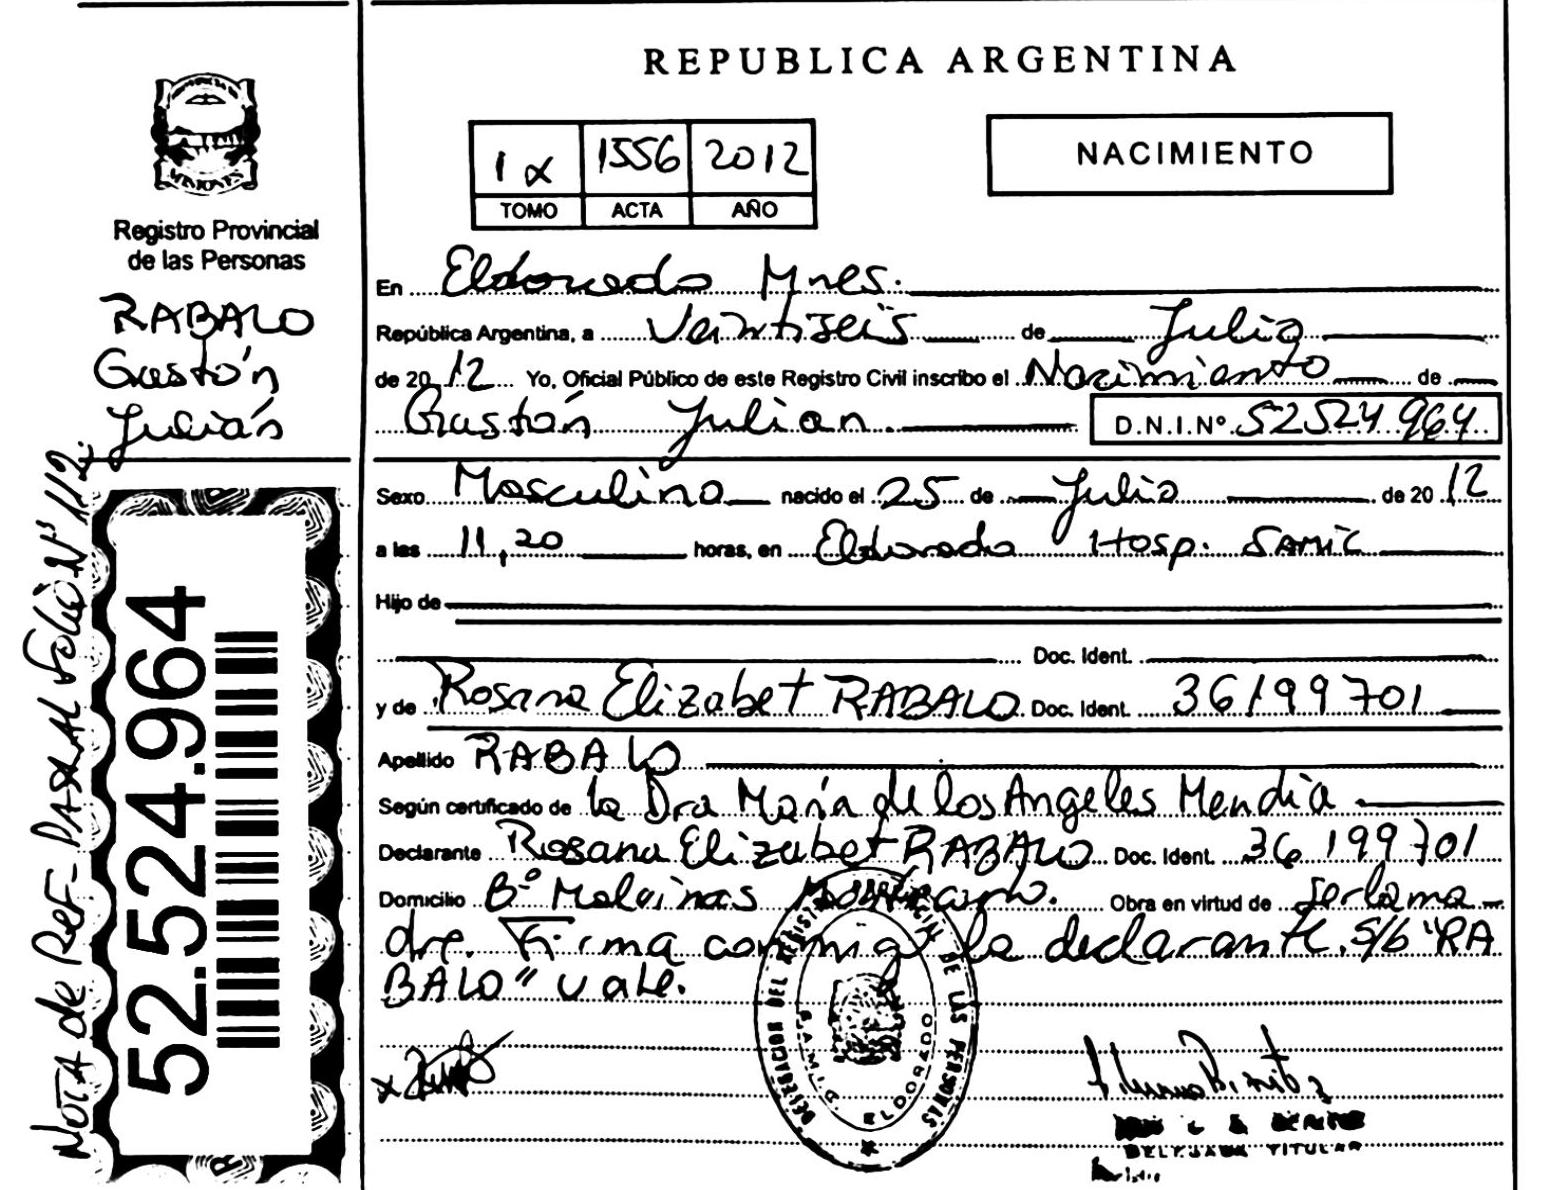 REPUBLICA ARGENTINA
NACIMIENTO
1 α 1556 2012
TOMO ACTA AÑO
MISIONES
Registro Provincial
de las Personas
RABALO
Gastón
Julián
En Eldorado Mnes.
República Argentina, a Veintiseis de Julio
de 2012 Yo, Oficial Público de este Registro Civil inscribo el Nacimiento de
Gastón Julian D.N.I.Nº 52524964
Sexo Masculino nacido el 25 de Julio de 2012
a las 11,20 horas, en Eldorado Hosp. SAMIC
Hijo de
Doc. Ident.
y de Rosana Elizabet RABALO Doc. Ident. 36199701
Apellido RABALO
Según certificado de la Dra María de los Angeles Mendia
Declarante Rosana Elizabet RABALO Doc. Ident. 36199701
Domicilio Bº Malvinas Obra en virtud de ser la ma
dre. Firma conmigo la declarante. S/b "RA
BALO" vale.
DELEGACION DEL REGISTRO PROVINCIAL DE LAS PERSONAS
S.A.M.I.C. ELDORADO
TITULAR
52.524.964
NOTA de REF- PASA AL folio Nº 112.